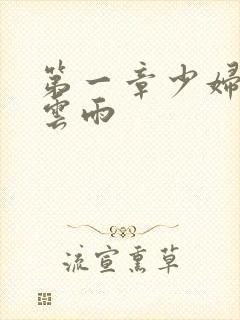 第一章少婦
雲雨
流宣熏草